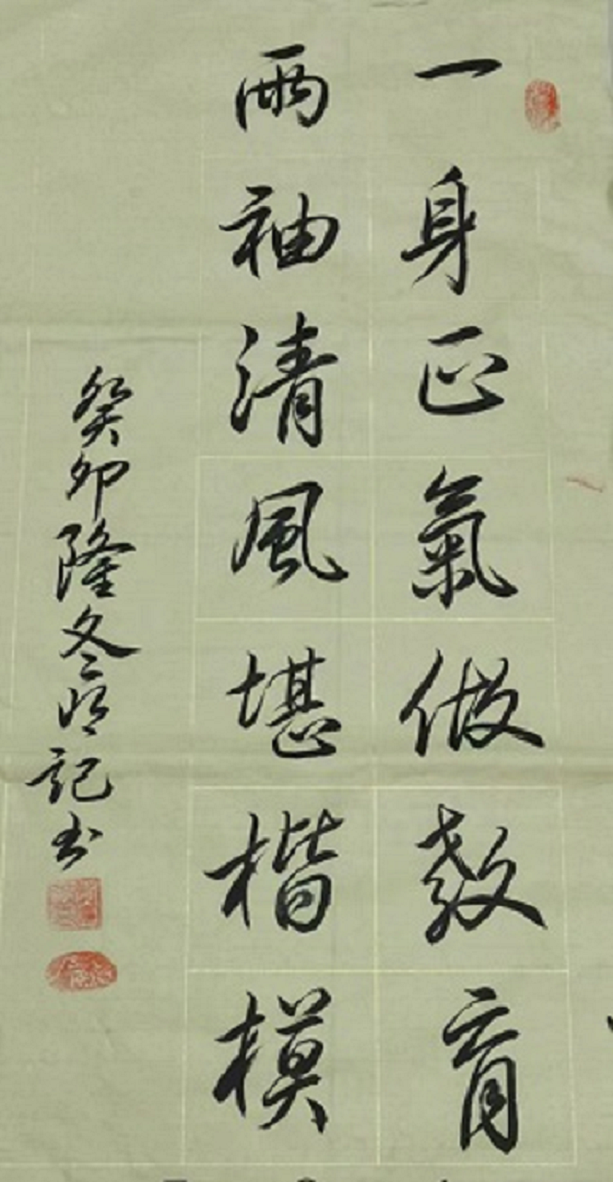 一身正氣做教育
兩袖清風堪楷模
癸卯隆冬明記书